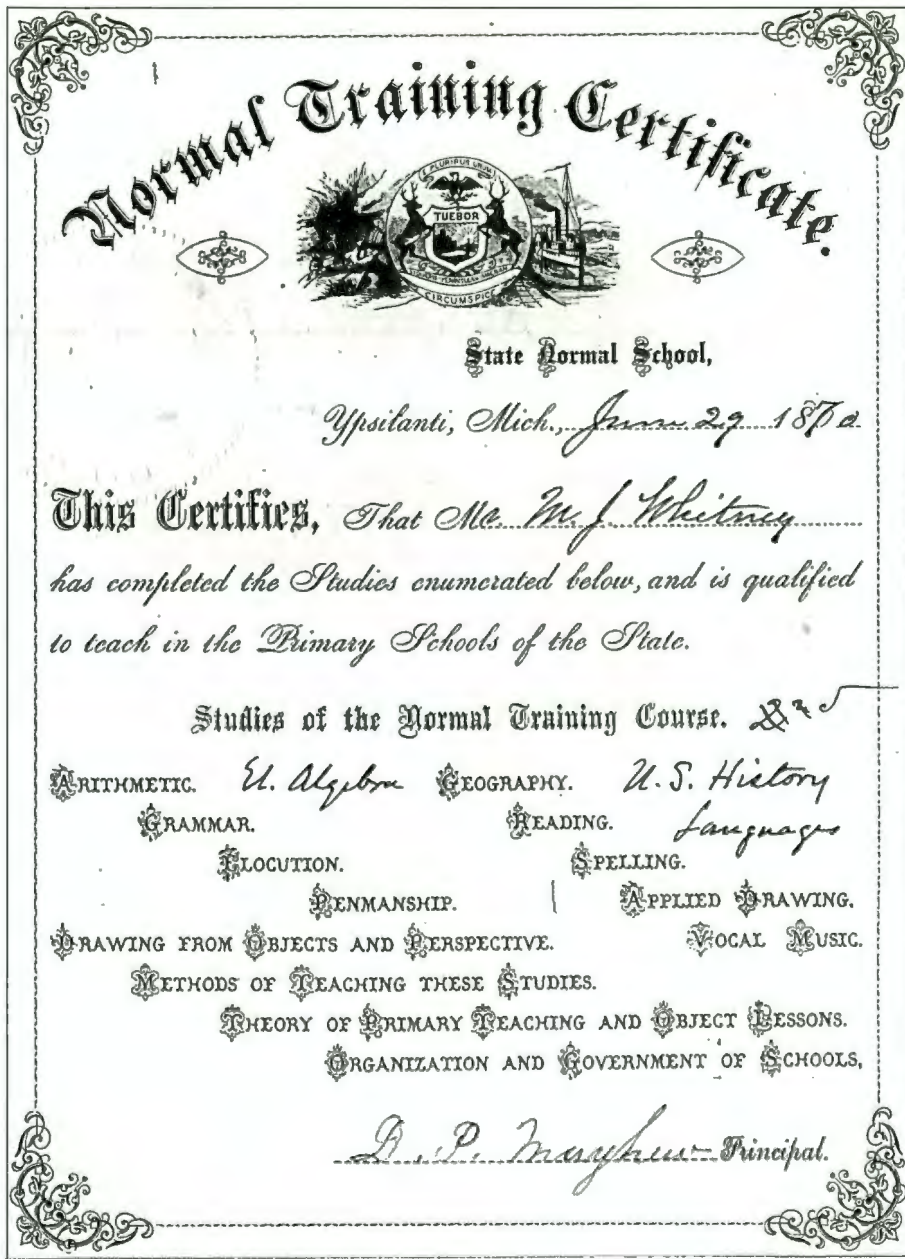 Normal Training Certificate.
E PLURIBUS UNUM
TUEBOR
CIRCUMSPICE
State Normal School,
Ypsilanti, Mich., June 29 1870
This Certifies, That Mr. M. J. Whitney
has completed the Studies enumerated below, and is qualified
to teach in the Primary Schools of the State.
Studies of the Normal Training Course.
ARITHMETIC. El. Algebra GEOGRAPHY. U.S. History
GRAMMAR. READING. Languages
ELOCUTION. SPELLING.
PENMANSHIP. APPLIED DRAWING.
DRAWING FROM OBJECTS AND PERSPECTIVE. VOCAL MUSIC.
METHODS OF TEACHING THESE STUDIES.
THEORY OF PRIMARY TEACHING AND OBJECT LESSONS.
ORGANIZATION AND GOVERNMENT OF SCHOOLS,
D. P. Mayhew Principal.